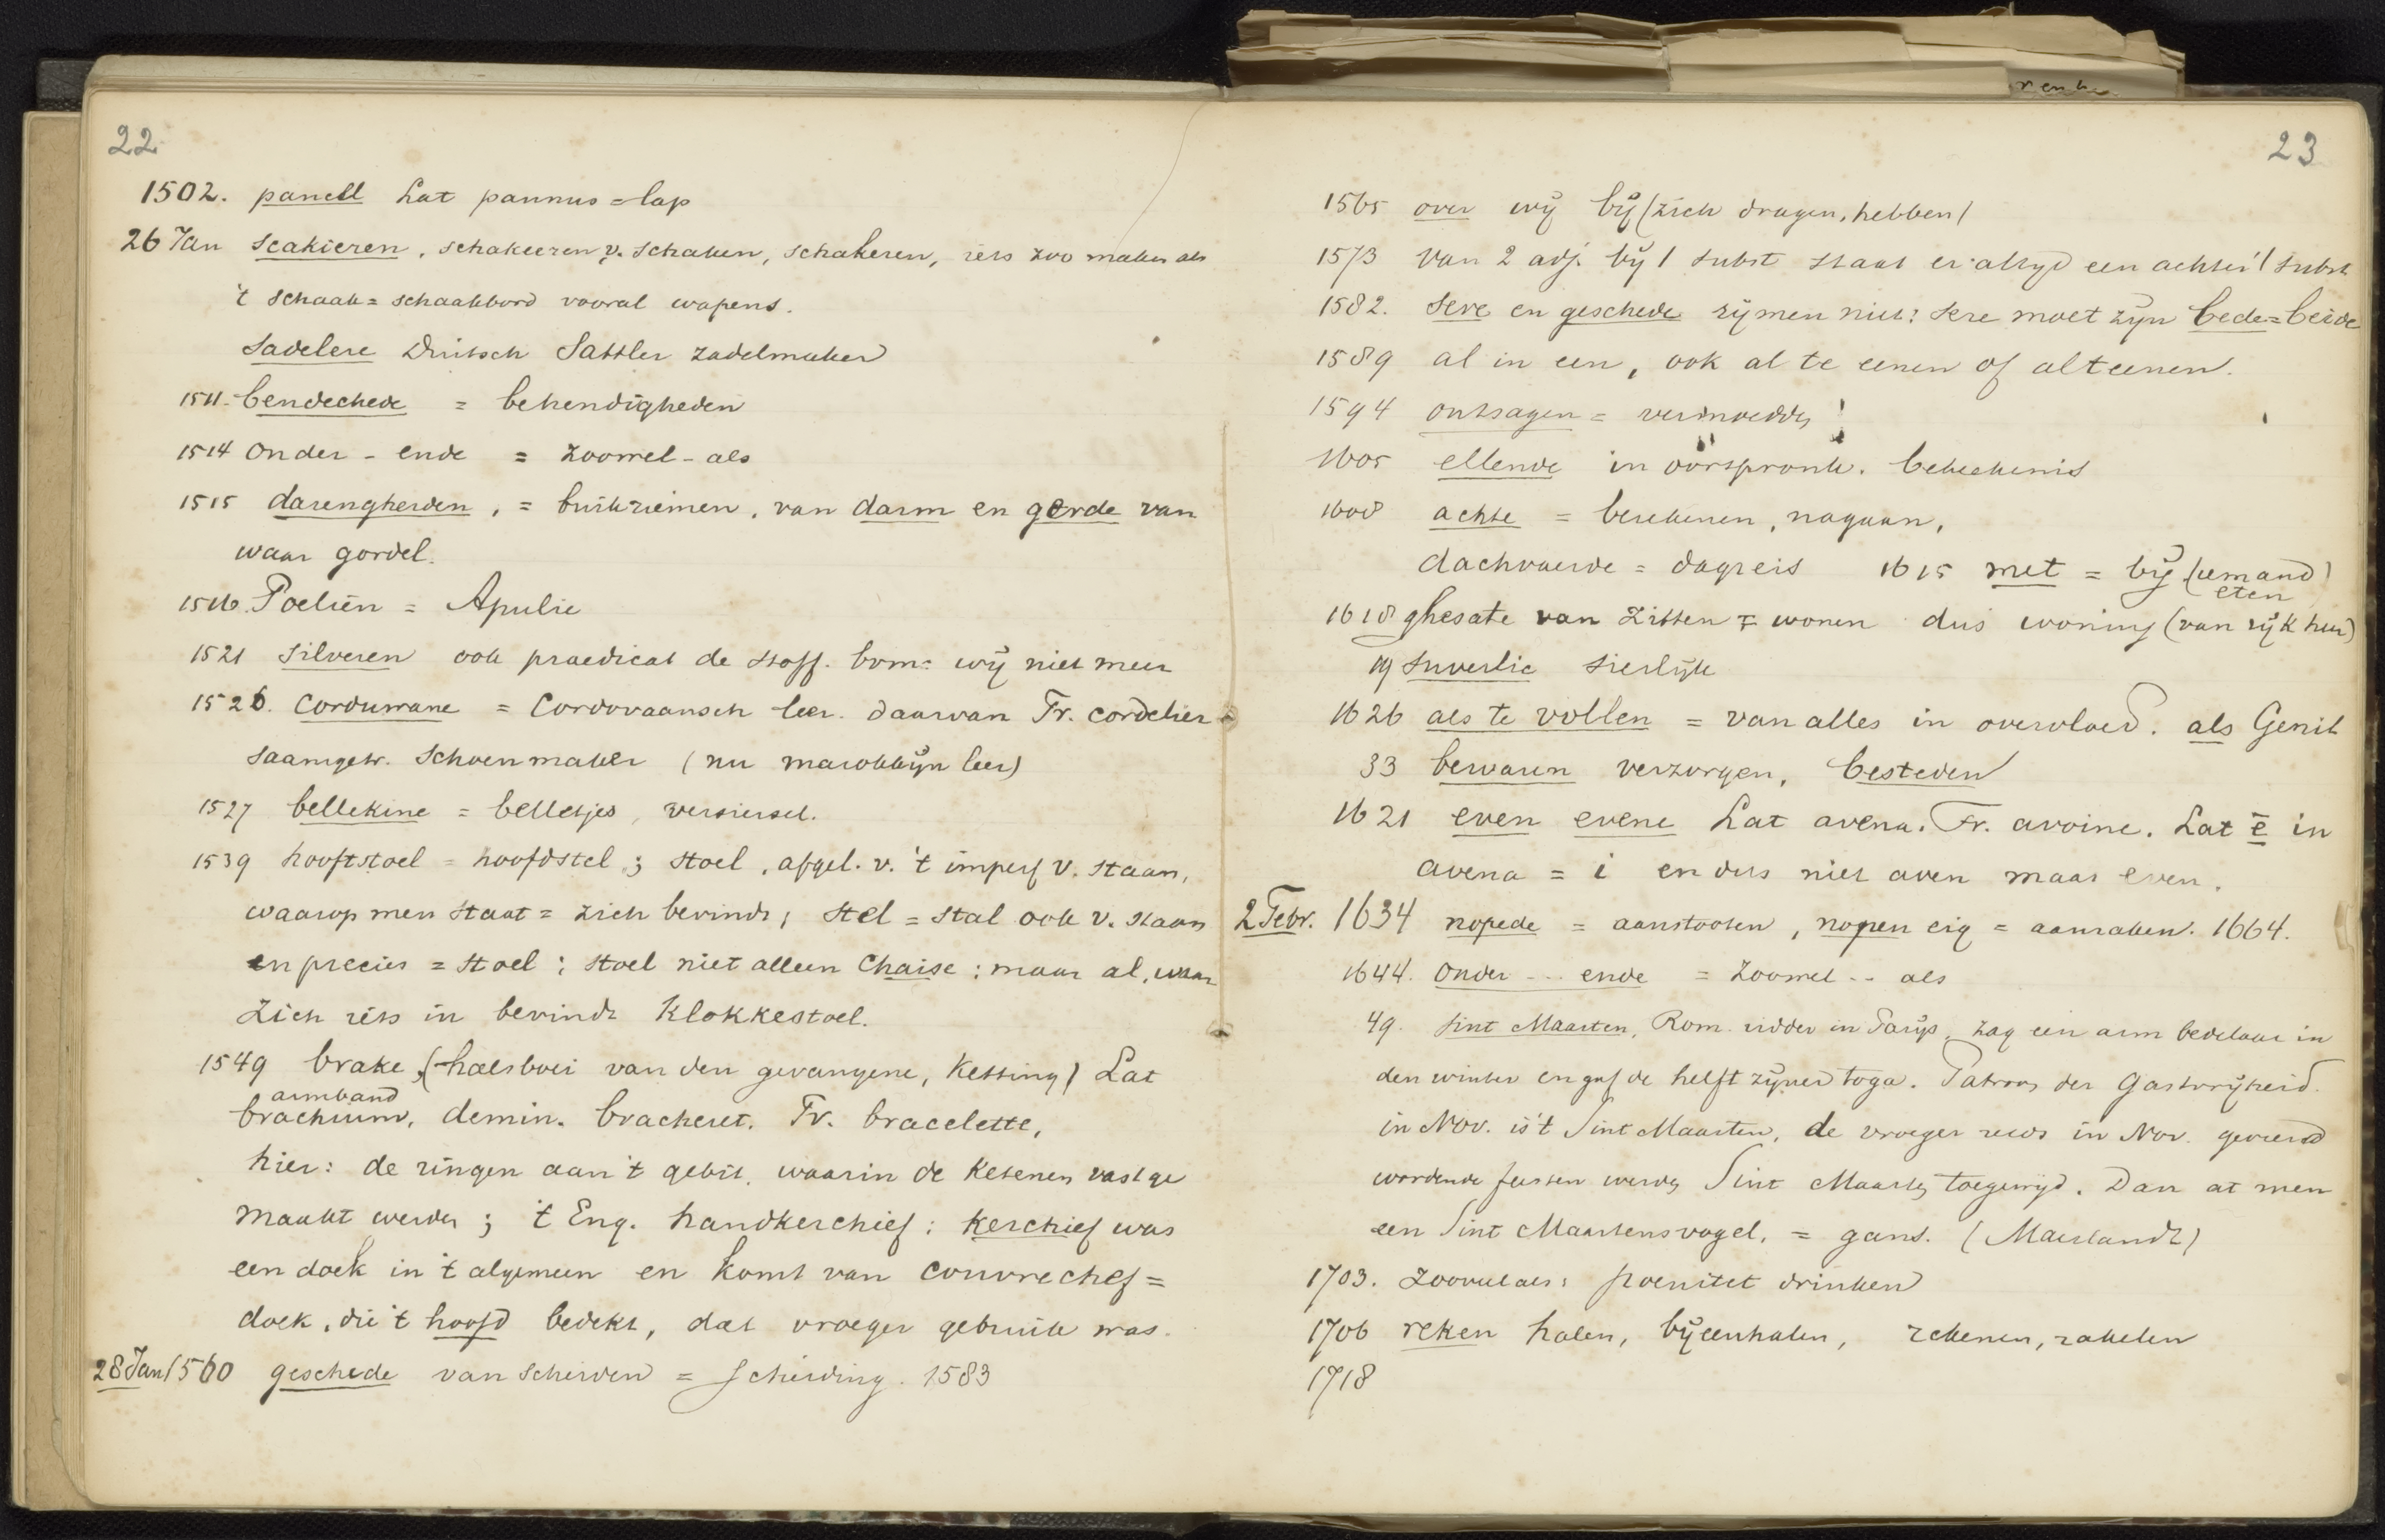 22
1502. panell Lat pannus = lap
26 Jan scakieren, schakeeren v. schaken, schakeren, iets zoo maken als
't schaak = schaakbord vooral wapens.
Sadelere Duitsch Sattler zadelmaker
1511. bendechede = behendigheden
1514 onder - ende = zoowel - als
1515 darengherden, = buikriemen, van darm en gerde van
waar gordel.
1516. Poeliën = Apulie
1521 silveren ook praedicat de stoff. bvm: wij niet meer
1526. Corduwane = Cordovaansch leer. daarvan Fr. cordelier
saamgetr. schoenmaker (nu marokkijn leer)
1527 bellekine = belletjes, versiersel.
1539 hooftstoel = hoofdstel; stoel, afgel. v. 't imperf v. staan,
waarop men staat = zich bevindt; stel = stal ook v. staan
en precies = stoel; stoel niet alleen chaise; maar al, waar
zich iets in bevindt Klokkestoel.
1549 brake, (halsboei van den gevangene, ketting) Lat
armband
brachium, demin. bracheret. Fr. bracelette,
hier: de ringen aan 't gebit, waarin de ketenen vastge
maakt werden; 't Eng. handkerchief: kerchief was
een doek in 't algemeen en komt van couvrechef =
doek, die 't hoofd bedekt, dat vroeger gebruik was.
28 Jan 1560 geschede van scheiden = scheiding. 1583
23
1565 over wij bij (zich dragen, hebben)
1573 van 2 adj. bij 1 subst staat er altijd een achter 't subst
1582. Sere en geschede rijmen niet: sere moet zijn bede = beide
1589 al in een, ook al te eenen of alteenen.
1594 ontsagen = vermoedde!
1605 ellende in oorspronk. beteekenis
1608 achte = berekenen, nagaan,
dachvaerde = dagreis 1615 met = bij (iemand)
eten
1618 ghesate van zitten = wonen dus woning (van rijk heer)
19 suverlic sierlijk
1626 als te vollen = van alles in overvloed. als Genit
33 bewaren verzorgen, besteden
1621 even evene Lat avena. Fr. avoine. Lat ē in
avena = i en dus niet aven maar even.
2 Febr. 1634 nopede = aanstooten, nopen eig = aanraken. 1664.
1644. onder -- ende = zoowel -- als
49. Sint Maarten, Rom. ridder in Parijs, zag een arm bedelaar in
den winter en gaf de helft zijner toga. Patroon der Gastvrijheid.
in Nov. is 't Sint Maarten, de vroeger reeds in Nov. gevierd
wordende feesten werden Sint Maarten toegewijd. Dan at men
een Sint Maartensvogel, = gans. (Maerlandt)
1703. zooveel als: poenitet drinken
1706 reken halen, bijeenhalen, rekenen, rakelen
1718